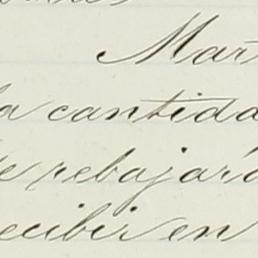 Mart
la cantida
se rebajará
recibir en